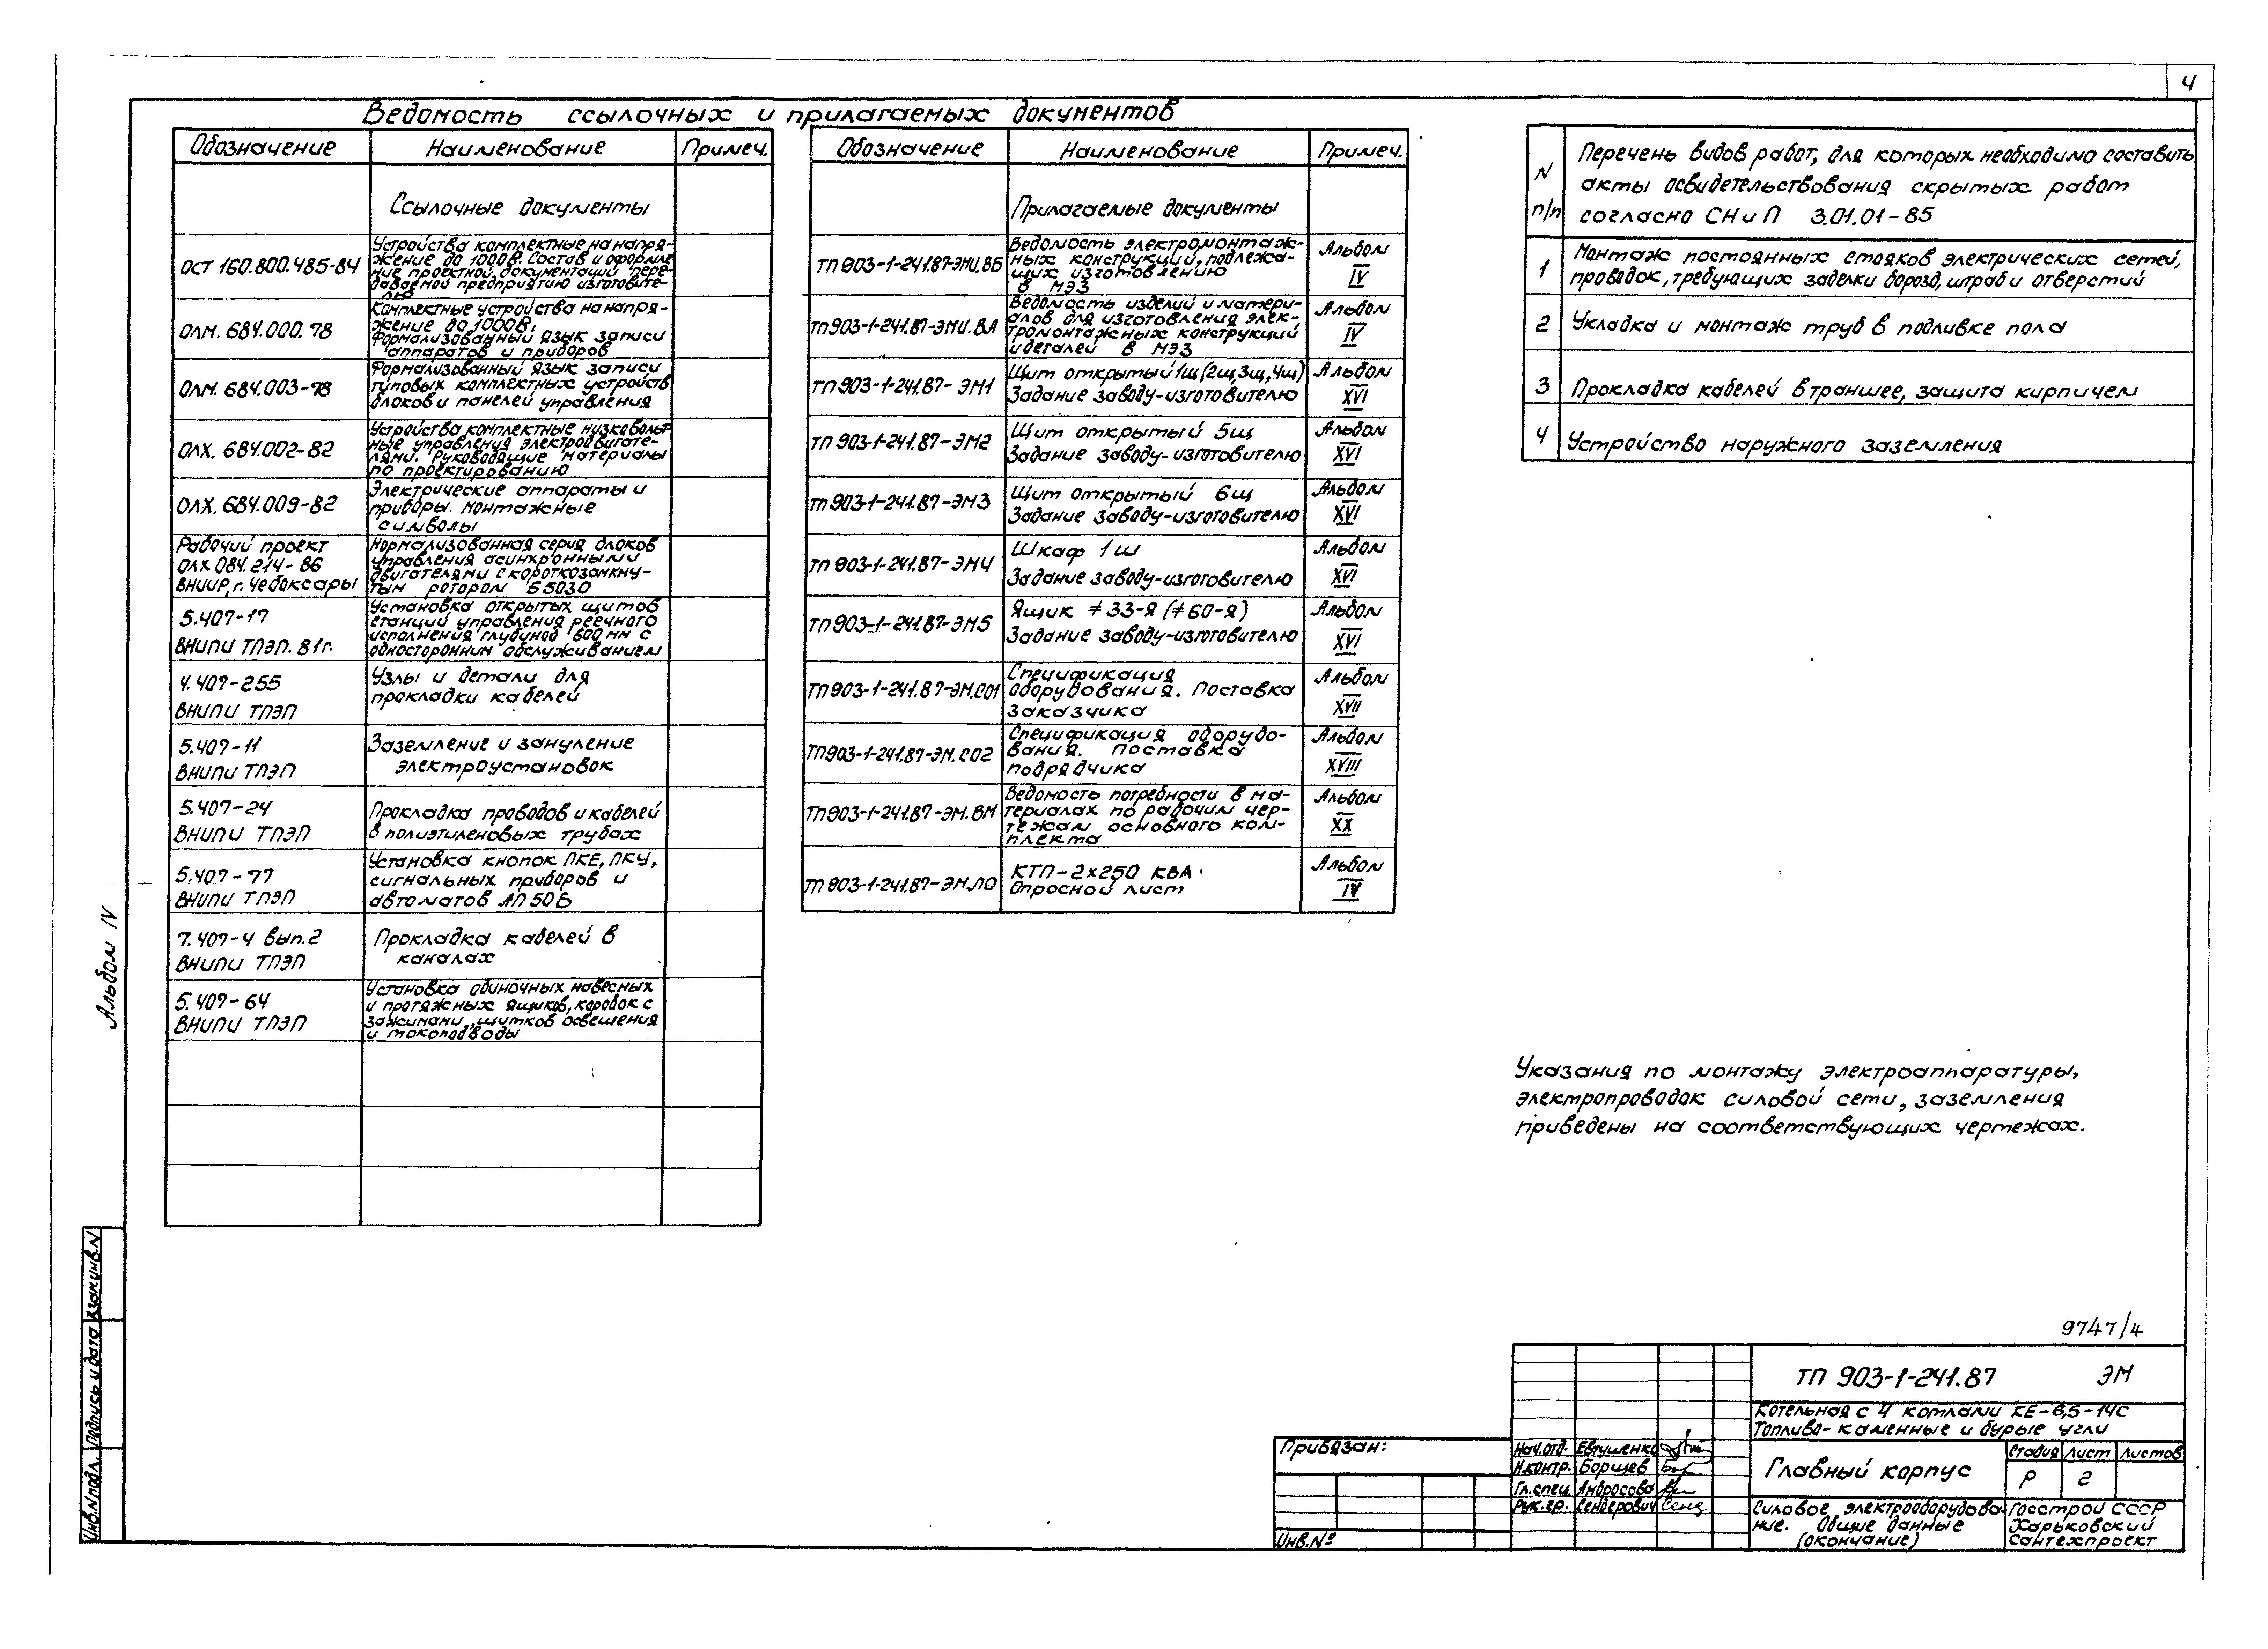 4
Ведомость ссылочных и прилагаемых документов
Обозначение Наименование Примеч.
Ссылочные документы
ОСТ 160.800.485-84
Устройства комплектные на напря-
жение до 1000В. Состав и оформле
ние проектной документации, пере-
даваемой предприятию изготовите-
лю
ОЛМ. 684.000.78
Комплектные устройства на напря-
жение до 1000В.
Формализованный язык записи
аппаратов и приборов
ОЛМ. 684.003-78
Формализованный язык записи
типовых комплектных устройств
блоков и панелей управления
ОЛХ. 684.002-82
Устройства комплектные низковольт
ные управления электродвигате-
лями. Руководящие материалы
по проектированию
ОЛХ. 684.009-82
Электрические аппараты и
приборы. Монтажные
символы
Рабочий проект
ОЛХ 084.214-86
ВНИИР, г. Чебоксары
Нормализованная серия блоков
управления асинхронными
двигателями с короткозамкну-
тым ротором Б5030
5.407-17
ВНИПИ ТПЭП. 81г.
Установка открытых щитов
станций управления реечного
исполнения глубиной 600 мм с
односторонним обслуживанием
4.407-255
ВНИПИ ТПЭП
Узлы и детали для
прокладки кабелей
5.407-11
ВНИПИ ТПЭП
Заземление и зануление
электроустановок
5.407-24
ВНИПИ ТПЭП
Прокладка проводов и кабелей
в полиэтиленовых трубах
5.407-77
ВНИПИ ТПЭП
Установка кнопок ПКЕ, ПКУ,
сигнальных приборов и
автоматов АП50Б
7.407-4 вып.2
ВНИПИ ТПЭП
Прокладка кабелей в
каналах
5.407-64
ВНИПИ ТПЭП
Установка одиночных навесных
и протяжных ящиков, коробок с
зажимами, щитков освещения
и токоподводы
Обозначение Наименование Примеч.
Прилагаемые документы
ТП 903-1-241.87-ЭМИ.ВБ
Ведомость электромонтаж-
ных конструкций, подлежа-
щих изготовлению
в МЭЗ
Альбом
IV
ТП903-1-241.87-ЭМИ.ВА
Ведомость изделий и матери-
алов для изготовления элек-
тромонтажных конструкций
и деталей в МЭЗ
Альбом
IV
ТП903-1-241.87-ЭМ1
Щит открытый 1щ(2щ,3щ,4щ)
Задание заводу-изготовителю
Альбом
XVI
ТП 903-1-241.87-ЭМ2
Щит открытый 5щ
Задание заводу-изготовителю
Альбом
XVI
ТП 903-1-241.87-ЭМ3
Щит открытый 6щ
Задание заводу-изготовителю
Альбом
XVI
ТП 903-1-241.87-ЭМ4
Шкаф 1ш
Задание заводу-изготовителю
Альбом
XVI
ТП903-1-241.87-ЭМ5
Ящик ≠33-Я (≠60-Я)
Задание заводу-изготовителю
Альбом
XVI
ТП903-1-241.87-ЭМ.СО1
Спецификация
оборудования. Поставка
заказчика
Альбом
XVII
ТП903-1-241.87-ЭМ.СО2
Спецификация оборудо-
вания. Поставка
подрядчика
Альбом
XVIII
ТП903-1-241.87-ЭМ.ВМ
Ведомость потребности в ма-
териалах по рабочим чер-
тежам основного ком-
плекта
Альбом
XX
ТП 903-1-241.87-ЭМ.ЛО
КТП-2х250 КВА
Опросной лист
Альбом
IV
N
п/п
Перечень видов работ, для которых необходимо составить
акты освидетельствования скрытых работ
согласно СНиП 3.01.01-85
1
Монтаж постоянных стояков электрических сетей,
проводок, требующих заделки борозд, штраб и отверстий
2 Укладка и монтаж труб в подливке пола
3 Прокладка кабелей в траншее, защита кирпичем
4 Устройство наружного заземления
Указания по монтажу электроаппаратуры,
электропроводок силовой сети, заземления
приведены на соответствующих чертежах.
Альбом IV
Взам.инв.N
Подпись и дата
Инв.N подл.
9747/4
ТП 903-1-241.87 ЭМ
Котельная с 4 котлами КЕ-6,5-14С
Топливо- каменные и бурые угли
Привязан:
Инв.№
Нач.отд. Евтушенко
Н.контр. Борщев
Гл.спец. Амбросова
Рук.гр. Сендерович
Главный корпус
Стадия Лист Листов
Р 2
Силовое электрооборудова-
ние. Общие данные
(окончание)
Госстрой СССР
Харьковский
Сантехпроект